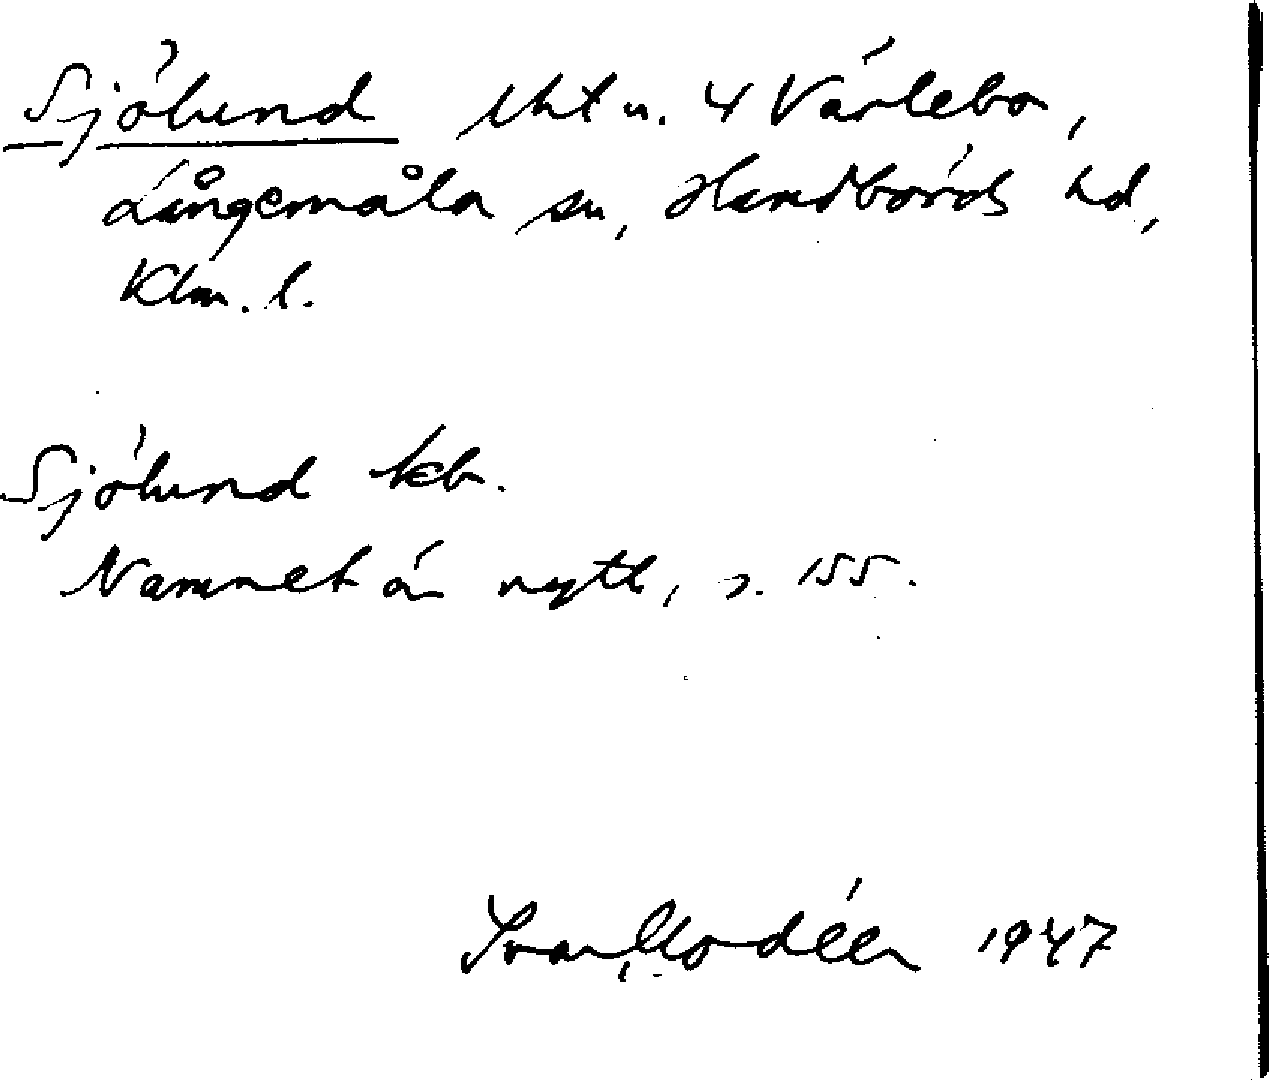 Sjölund lht u. 4 Värlebo,
Långemåla sn, Handbörds hd,
Klm. l.
Sjölund kb.
Namnet är nytt, s. 155.
Ivar Modéer 1947